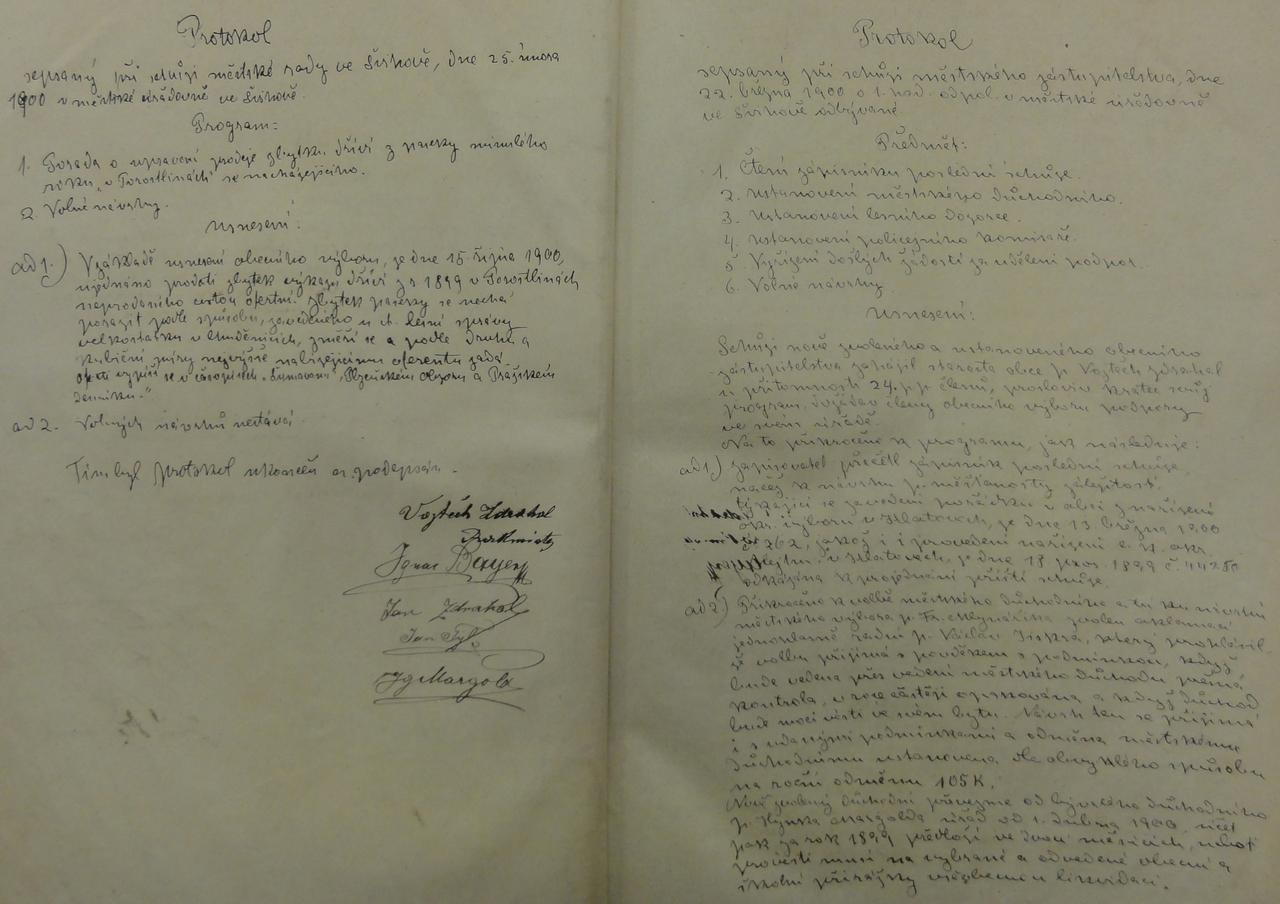 Protokol
sepsaný při schůzi městské rady ve Švihově, dne 25. února
1900 v městské úřadovně ve Švihově.
Program:
1. Porada o upravení prodeje zbytku dříví z paseky minulého
roku „v Porostlinách" se nacházejícího.
2. Volné návrhy.
Usnesení:
ad 1.) V základě usnesení obecního výboru, že dne 15. října 1900,
ujednáno prodati zbytek dříví z r. 1899 v Porostlinách
neprodaného cestou ofertní. Zbytek paseky se nechá
porazit podle způsobu, zavedeného u lesní správy
velkostatku v Chuděnicích, změří se a podle druhu a
kubiční míry nejvýše nabízejícímu oferentu zadá.
se v časopisech „Šumavan", Plzeňském Obzoru a Pražském
denníku."
ad 2. Volných návrhů nestává.
Tím byl protokol ukončen a podepsán.
Vojtěch Zdrahal
Purkmistr
Ignac Beyer
Jan Zdrahal
Jan Tyl
Ig Margold
Protokol
sepsaný při schůzi městského zastupitelstva, dne
22. března 1900 o 1. hod. odpol. v městské úřadovně
ve Švihově odbývané.
Předmět:
1. Čtení zápisníku poslední schůze.
2. Ustanovení městského důchodního.
3. Ustanovení lesního dozorce.
4. Ustanovení policejního komisaře.
5. Vyřízení došlých žádostí za udělení podpor.
6. Volné návrhy.
Usnesení:
Schůzi nově zvoleného a ustanoveného obecního
zastupitelstva zahájil starosta obce p. Vojtěch Zdrahal
u přítomnosti 24 p.p. členů, prosloviv krátce svůj
program, členy obecního výboru podpory
ve svém úřadě.
Na to přikročeno k programu, jak následuje:
ad 1.) Zapisovatel přečetl zápisník poslední schůze,
načež k návrhu p. měšťanosty záležitost
týkající se zavedení pořádku v obci z nařízení
okr. výboru v Klatovech, že dne 13. března 1900
č. 262, jakož i provedení nařízení c. k. okr.
v Klatovech, že dne 18. pros. 1899 č. 44280
odkázána k projednání příští schůze.
ad 2.) Přikročeno k volbě městského důchodního a tu ku návrhu
městského výbora p. Fr. Mlynaříka zvolen aklamací
jednohlasně radní p. Václav Jiskra, který prohlásil,
že volbu přijímá s povděkem s podmínkou, když
bude vedena přes vedení městského důchodu
kontrola, v roce častěji opakována a když důchod
bude moci vésti ve svém bytu. Návrh ten se přijímá
i s udanými podmínkami a odměna městskému
důchodnímu ustanovena dle obvyklého způsobu
na roční odměnu 105 K.
Nově zvolený důchodní převezme od bývalého důchodního
p. Hynka Margolda úřad od 1. dubna 1900, účet
pak za rok 1899 předloží ve dvou měsících, neboť
provésti musí na vybrané a odvedené obecní a
školní přirážky všeobecnou likvidaci.